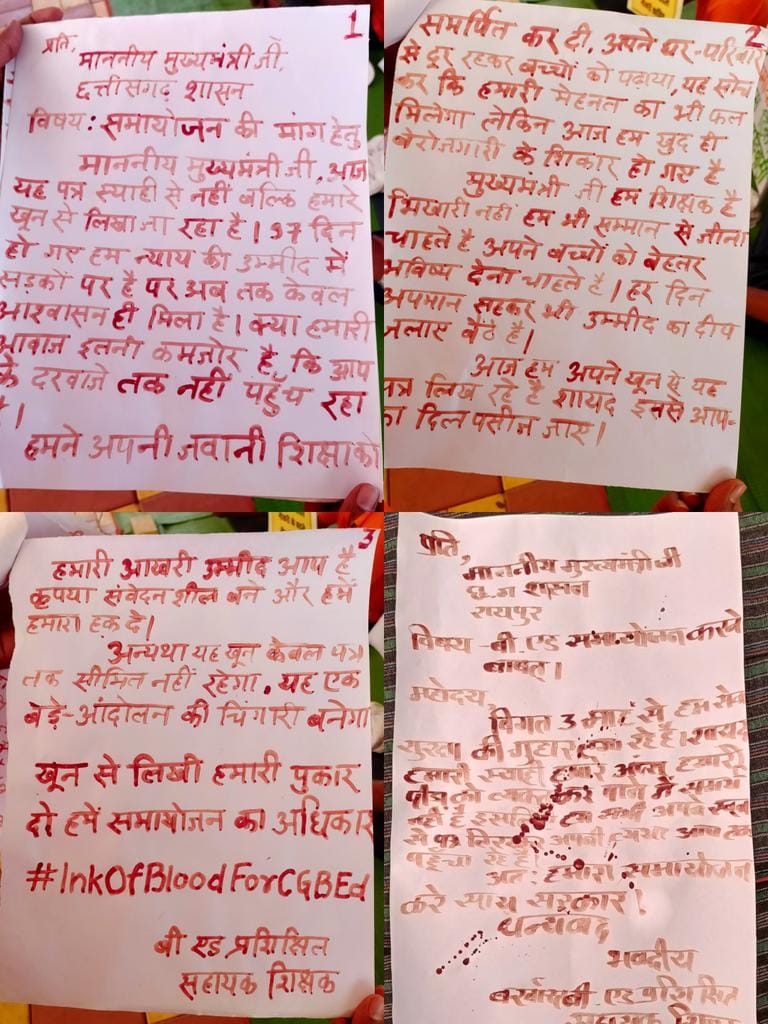 1
प्रति,
माननीय मुख्यमंत्री जी,
छत्तीसगढ़ शासन
विषय: समायोजन की मांग हेतु
माननीय मुख्यमंत्री जी, आज
यह पत्र स्याही से नहीं बल्कि हमारे
खून से लिखा जा रहा है। 97 दिन
हो गए हम न्याय की उम्मीद में
सड़कों पर है पर अब तक केवल
आश्वासन ही मिला है। क्या हमारी
आवाज इतनी कमजोर है, कि आप
के दरवाजे तक नहीं पहुँच रहा
है।
हमने अपनी जवानी शिक्षा को
2
समर्पित कर दी, अपने घर-परिवार
से दूर रहकर बच्चों को पढ़ाया, यह सोच
कर कि हमारी मेहनत का भी फल
मिलेगा लेकिन आज हम खुद ही
बेरोजगारी के शिकार हो गए है
मुख्यमंत्री जी हम शिक्षक है
भिखारी नहीं हम भी सम्मान से जीना
चाहते है अपने बच्चों को बेहतर
भविष्य देना चाहते है। हर दिन
अपमान सहकर भी उम्मीद का दीप
जलाए बैठे है।
आज हम अपने खून से यह
पत्र लिख रहे है शायद इससे आप-
का दिल पसीज जाए।
3
हमारी आखरी उम्मीद आप है
कृपया संवेदनशील बने और हमें
हमारा हक दे।
अन्यथा यह खून केवल पत्र
तक सीमित नहीं रहेगा. यह एक
बड़े-आंदोलन की चिंगारी बनेगा
खून से लिखी हमारी पुकार
दो हमें समायोजन का अधिकार
#InkOfBloodForCGBEd
बी एड प्रशिक्षित
सहायक शिक्षक
प्रति,
माननीय मुख्यमंत्री जी
छ.ग शासन
रायपुर
विषय - बी.एड समायोजन करने
बाबत।
महोदय,
विगत 3 माह से हम सेवा
सुरक्षा की गुहार लगा रहे है। शायद
हमारी स्याही हमारे आंसू हमारी
पीड़ा को व्यक्त कर पाने में समर्थ
नहीं है इसलिए हम सभी अपने खून
से पत्र लिखकर अपनी व्यथा आप तक
पहुंचा रहे है।
अतः हमारा समायोजन
करे साय सरकार!
धन्यवाद
भवदीय
बर्खास्त बी.एड प्रशिक्षित
सहायक शिक्षक